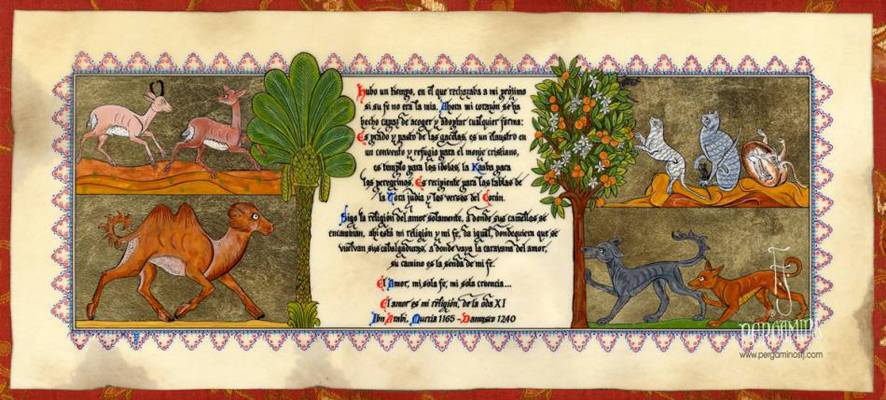 Hubo un tiempo, en el que rechazaba a mi prójimo
si su fe no era la mía. Ahora mi corazón se ha
hecho capaz de acoger y adoptar cualquier forma:
Es prado y pasto de las gacelas, es un claustro en
un convento y refugio para el monje cristiano,
es templo para los ídolos, la Kaaba para
los peregrinos. Es recipiente para las tablas de
la Tora judía y los versos del Corán.
Sigo la religión del amor solamente, a donde sus camellos se
encaminan, ahí está mi religión y mi fe, da igual, dondequiera que se
vuelvan sus cabalgaduras, a donde vaya la caravana del amor,
su camino es la senda de mi fe.
El Amor, mi sola fe, mi sola creencia...
El amor es mi religión, de la oda XI
Ibn Arabi, Murcia 1165 - Damasco 1240
PERGAMINOS
www.pergaminosfj.com